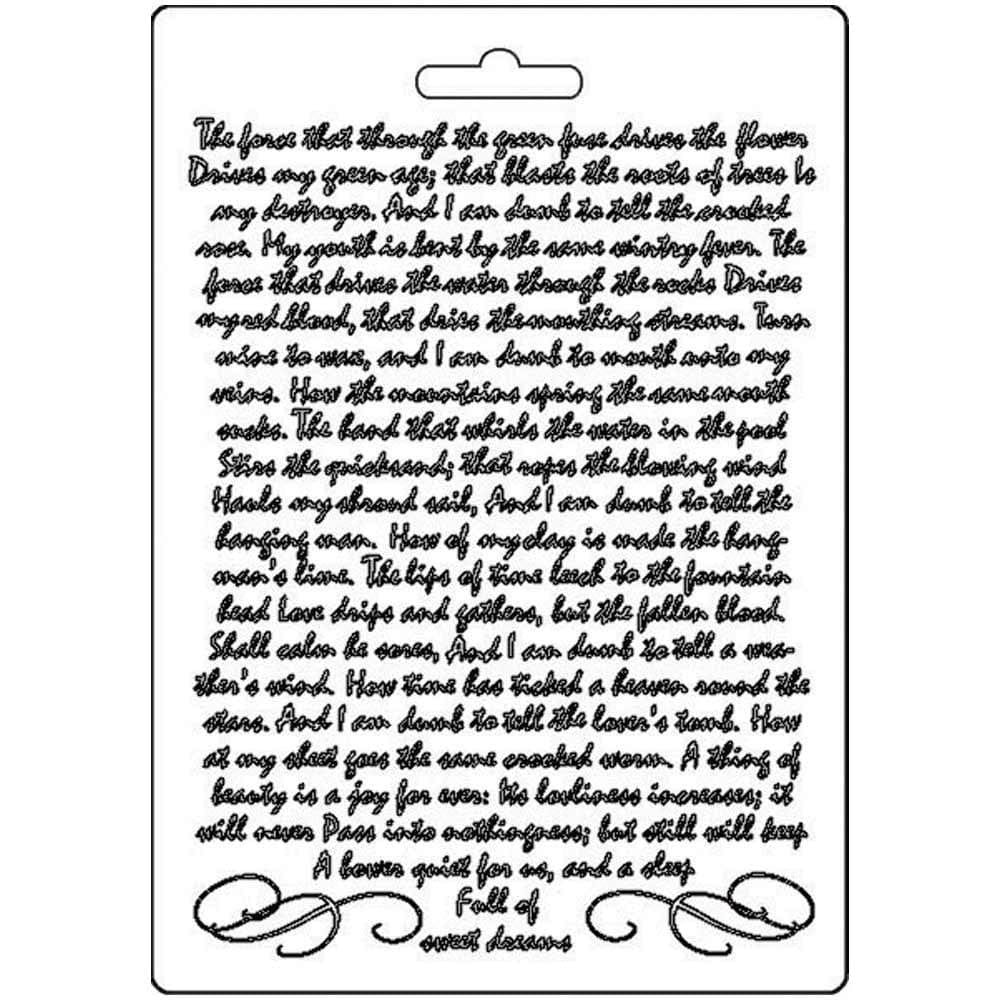 The force that through the green fuse drives the flower
Drives my green age; that blasts the roots of trees Is
my destroyer. And I am dumb to tell the crooked
rose. My youth is bent by the same wintry fever. The
force that drives the water through the rocks Drives
my red blood, that dries the mouthing streams. Turn
mine to wax, and I am dumb to mouth unto my
veins. How the mountains spring the same mouth
sucks. The hand that whirls the water in the pool
Stirs the quicksand; that ropes the blowing wind
Hauls my shroud sail, And I am dumb to tell the
hanging man. How of my clay is made the hang-
man's lime. The lips of time leech to the fountain
head Love drips and gathers, but the fallen blood.
Shall calm he sores, And I am dumb to tell a wea-
ther's wind. How time has ticked a heaven round the
stars. And I am dumb to tell the lover's tomb. How
at my sheet goes the same crooked worm. A thing of
beauty is a joy for ever: Its lovliness increases; it
will never Pass into nothingness; but still will keep
A bower quiet for us, and a sleep
Full of
sweet dreams